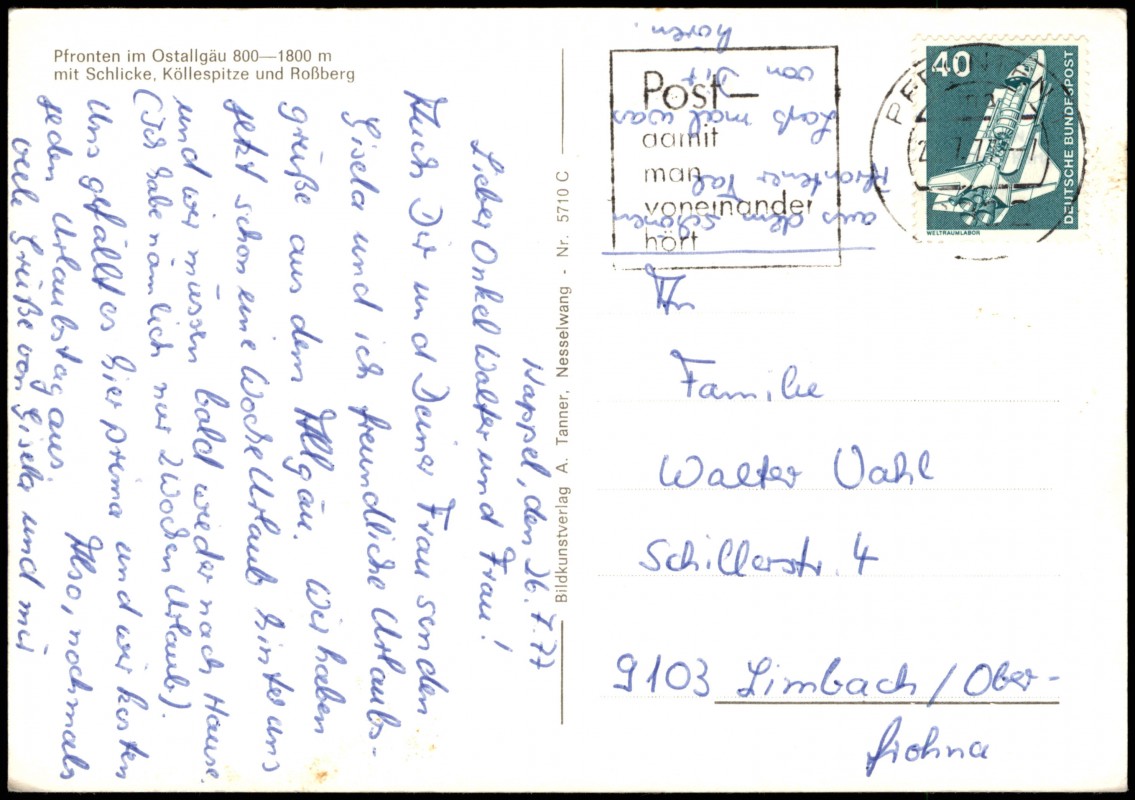 Pfronten im Ostallgäu 800—1800 m
mit Schlicke, Köllespitze und Roßberg
Nappel, den 26.7.77
Lieber Onkel Walter und Frau!
Auch Dir und Deiner Frau senden
Gisela und ich freundliche Urlaubs-
grüße aus dem Allgäu. Wir haben
jetzt schon eine Woche Urlaub hinter uns
und wir müssen bald wieder nach Hause.
(Ich habe nämlich nur 2 Wochen Urlaub).
Uns gefällt es hier prima und wir kosten
jeden Urlaubstag aus. Also, nochmals
viele Grüße von Gisela und mir
aus dem schönen
Pfrontener Tal
Laß mal was
von Dir
hören.
Bildkunstverlag A. Tanner, Nesselwang - Nr. 5710 C
Post—
damit
man
voneinander
hört
40
DEUTSCHE BUNDESPOST
WELTRAUMLABOR
An
Familie
Walter Vahl
Schillerstr. 4
9103 Limbach/Ober-
frohna